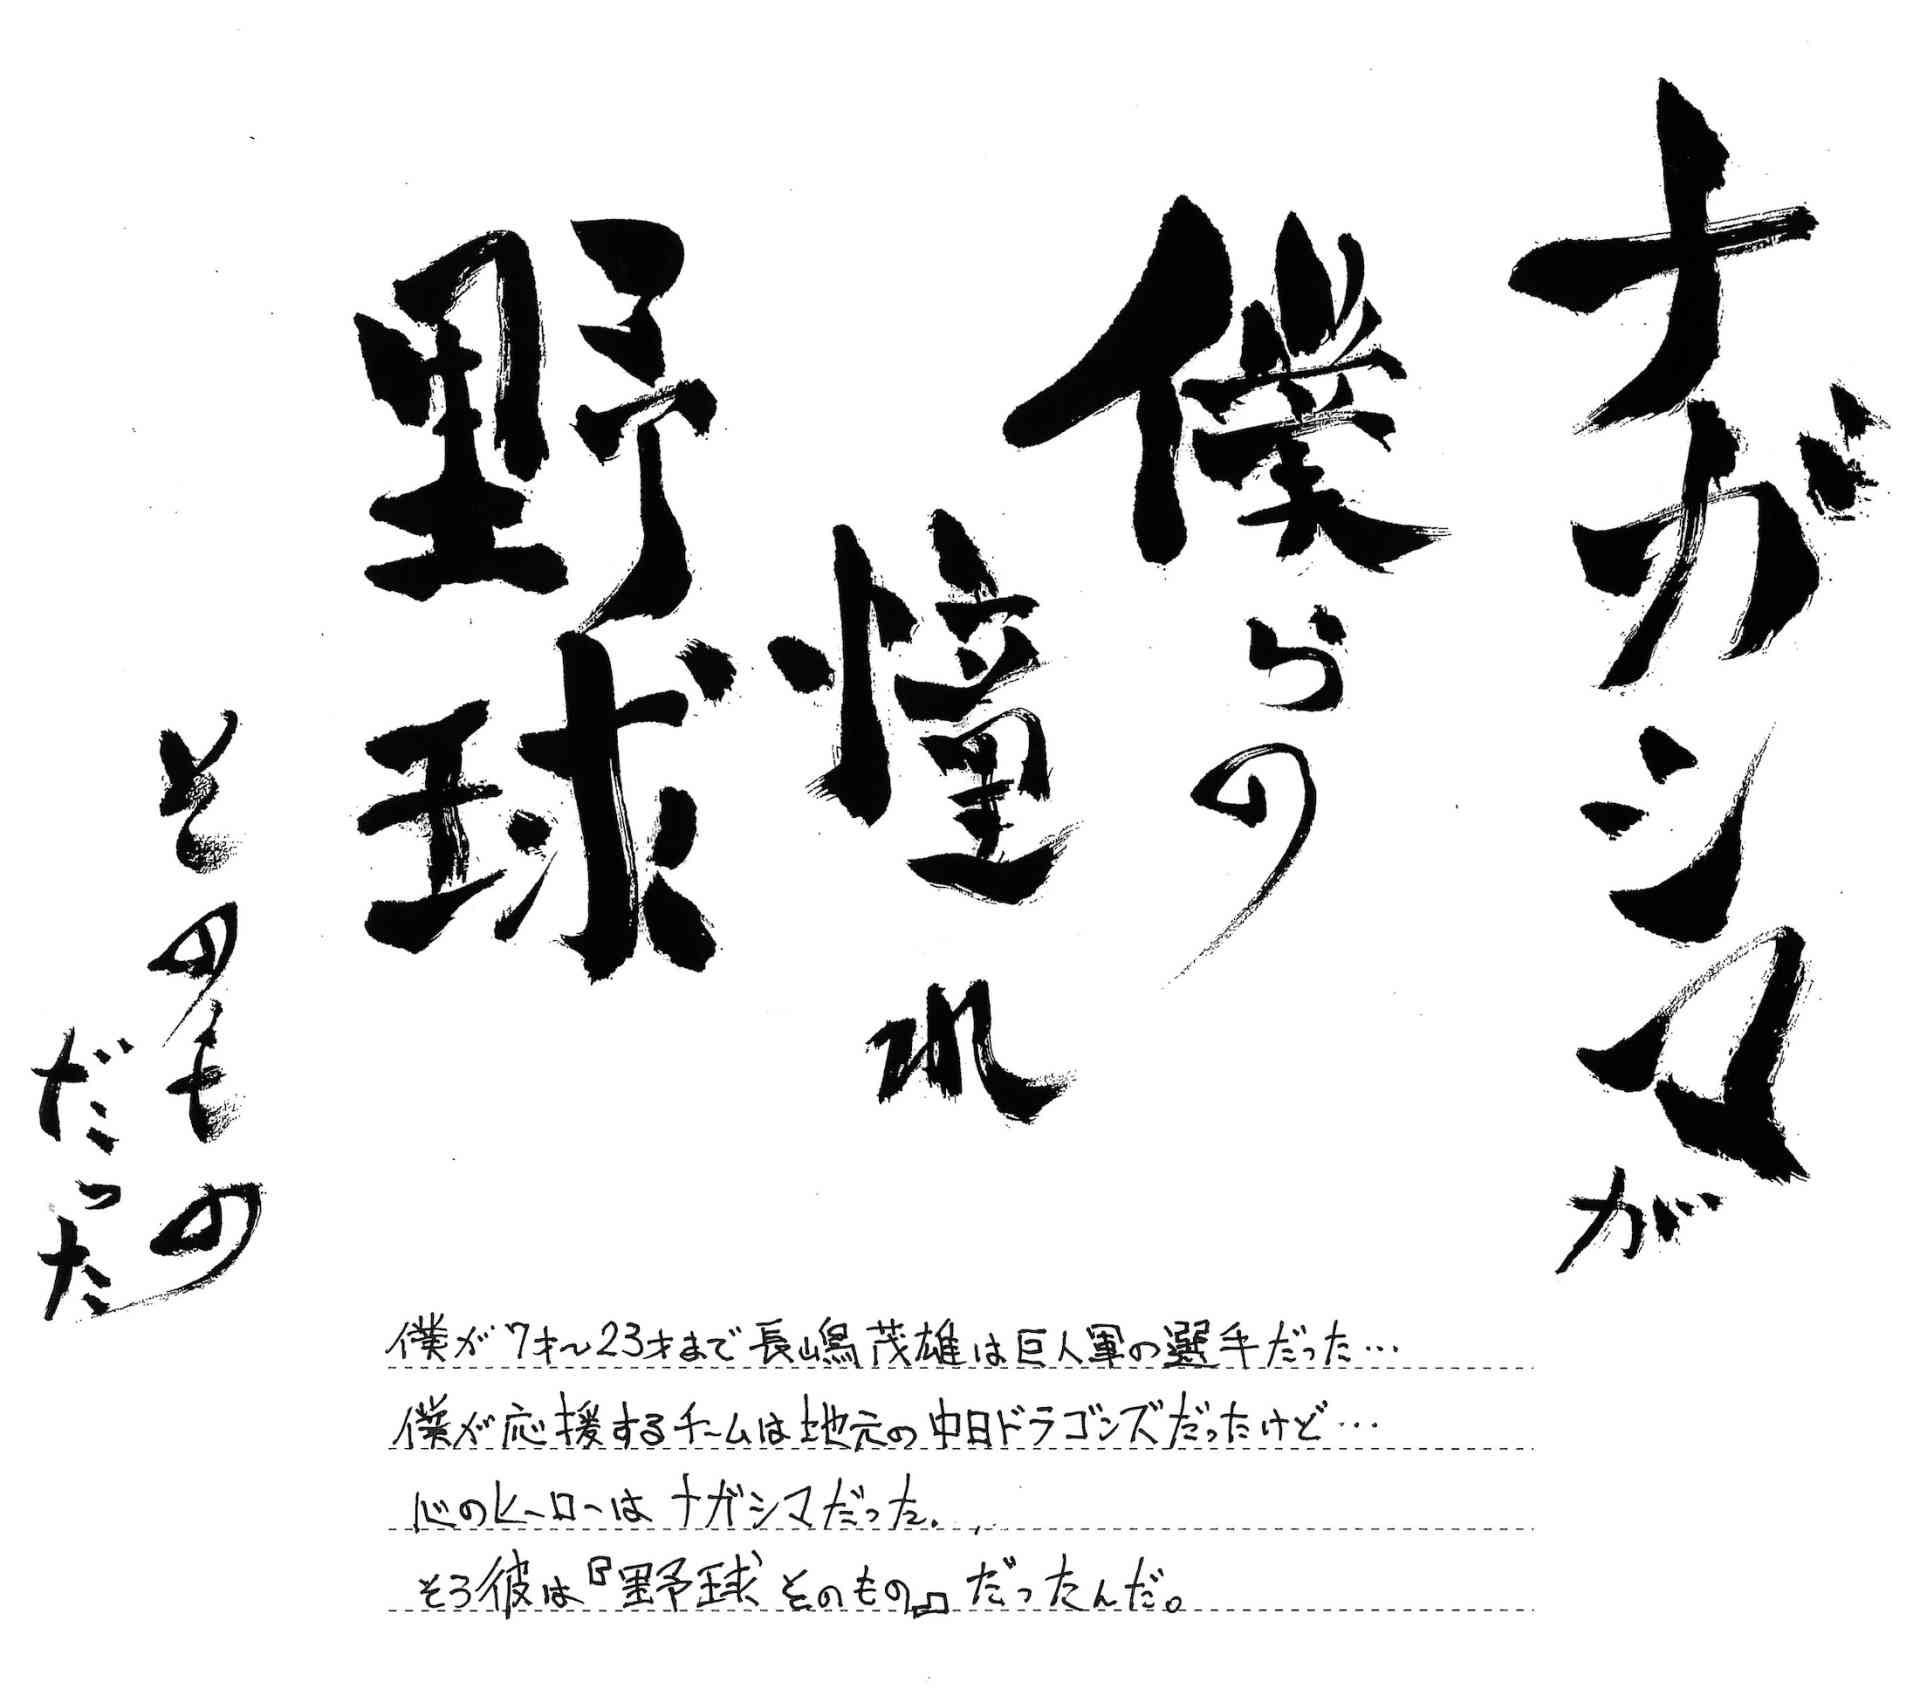 ナガシマが
僕らの
憧れ
野球
そのもの
だった
僕が7才〜23才まで長嶋茂雄は巨人軍の選手だった…
僕が応援するチームは地元の中日ドラゴンズだったけど…
心のヒーローはナガシマだった．
そう彼は『野球そのもの』だったんだ。